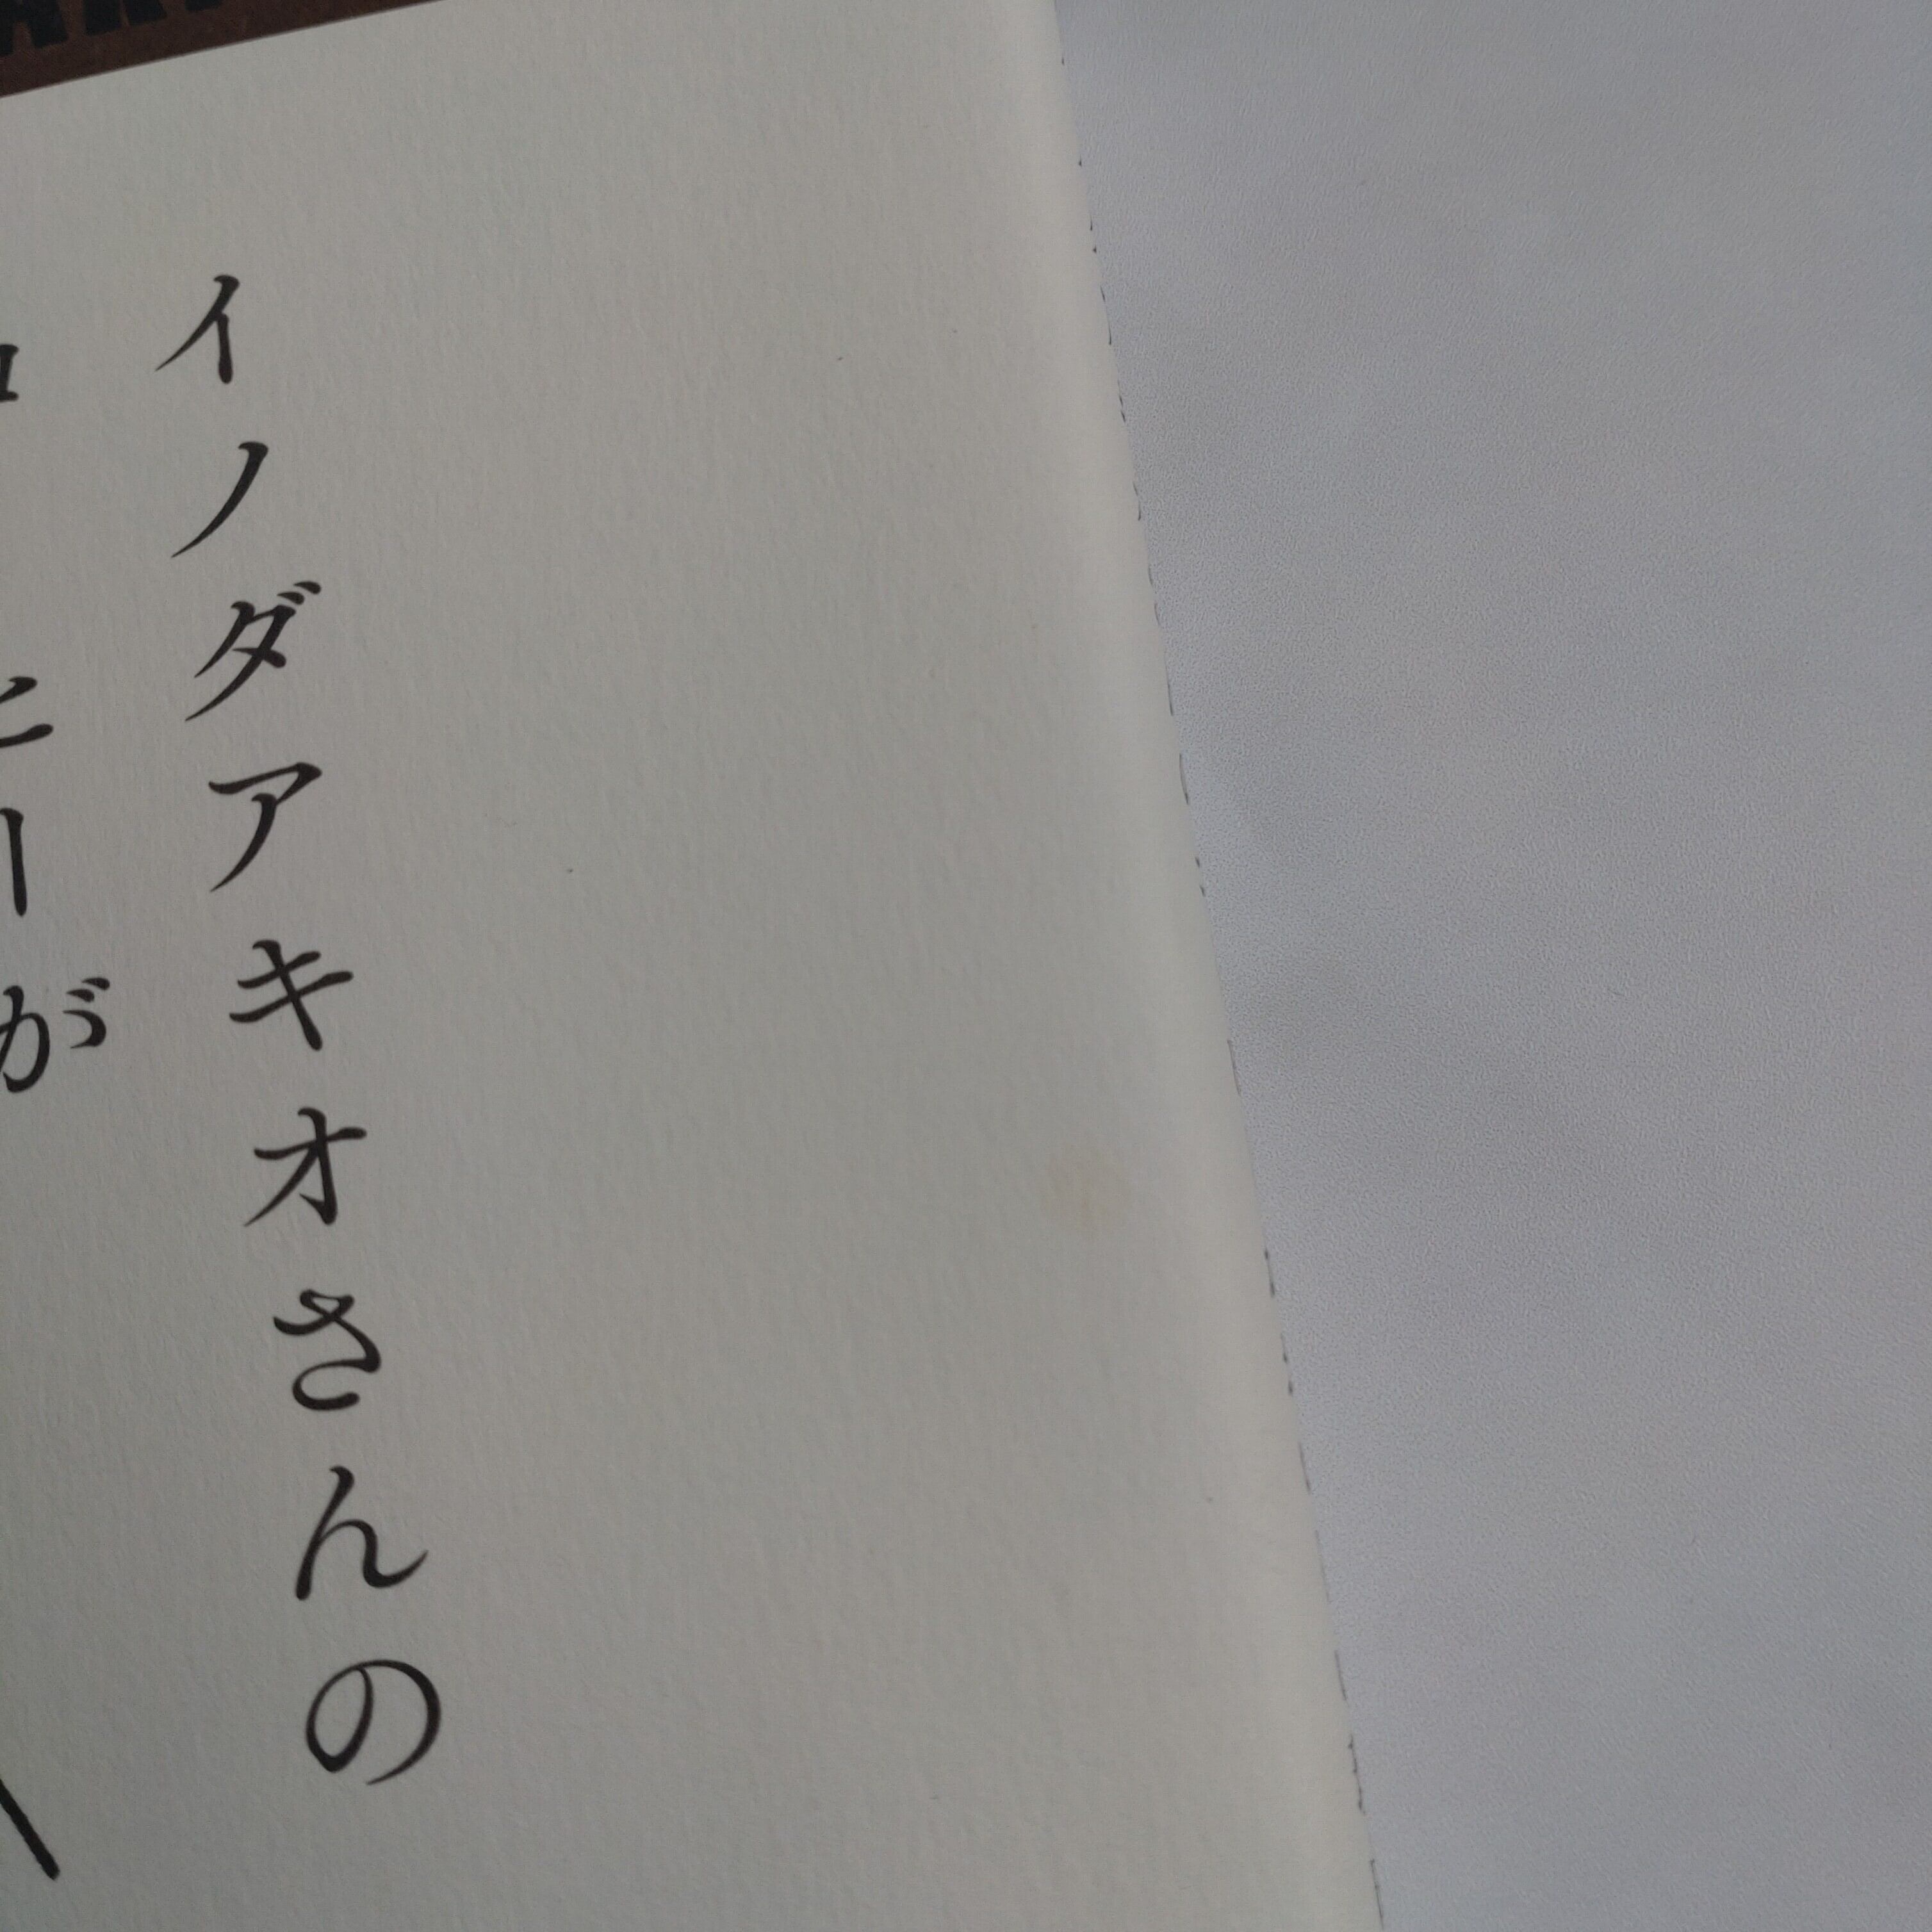 イノダアキオさんの
コーヒーが